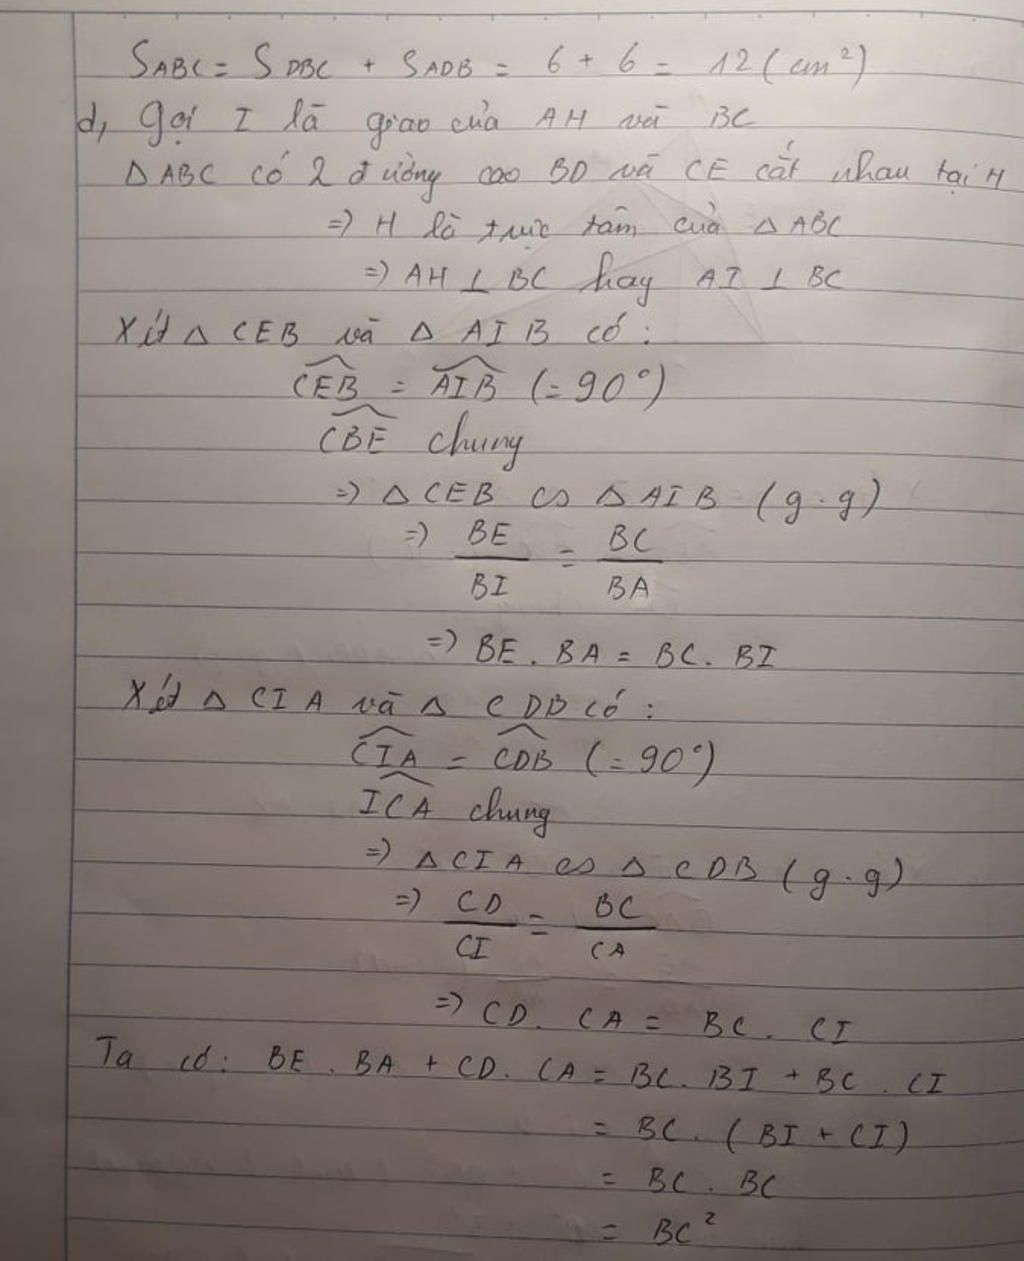 SABC = SDBC + SADB = 6 + 6 = 12 (cm²)
d, Gọi I là giao của AH và BC
△ABC có 2 đường cao BD và CE cắt nhau tại H
=> H là trực tâm của △ABC
=> AH ⊥ BC hay AI ⊥ BC
Xét △CEB và △AIB có:
CEB = AIB (= 90°)
CBE chung
=> △CEB ∽ △AIB (g.g)
=> BE/BI = BC/BA
=> BE. BA = BC. BI
Xét △CIA và △CDB có:
CIA = CDB (= 90°)
ICA chung
=> △CIA ∽ △CDB (g.g)
=> CD/CI = BC/CA
=> CD. CA = BC. CI
Ta có: BE. BA + CD. CA = BC. BI + BC. CI
= BC. (BI + CI)
= BC. BC
= BC²